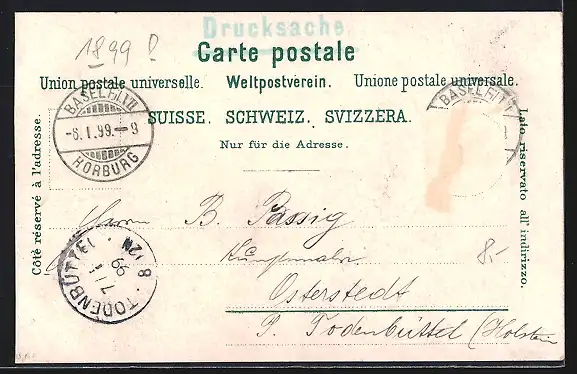 Drucksache
1899 !
Carte postale
Union postale universelle. Weltpostverein. Unione postale universale.
SUISSE. SCHWEIZ. SVIZZERA.
Nur für die Adresse.
Côté réservé à l'adresse.
Lato riservato all' indirizzo.
BASEL FIL.VII
-6.I.99.-9
HORBURG
BASEL FIL.VII
Herrn B. Passig
8-
Osterstedt
P. Todenbüttel (Holstein
TODENBÜTTEL
7/1
99
8-12N